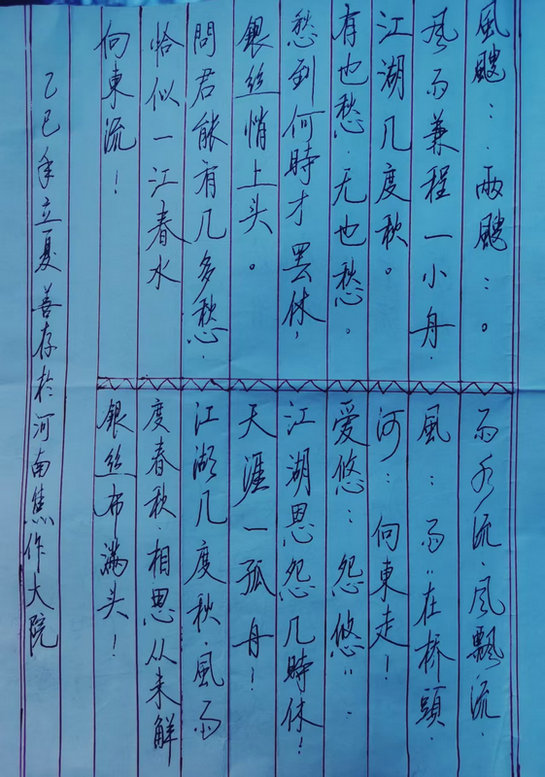 風颼：．雨颼：。
風雨兼程一小舟．
江湖几度秋。
有也愁．无也愁。
愁到何時才罢休，
銀丝悄上头。
問君能有几多愁．
恰似一江春水
向東流！
雨水流．風飄流．
風：雨：在桥頭．
河：向東走！
爱悠：怨悠：．
江湖恩怨几時休！
天涯一孤舟！
江湖几度秋．風雨
度春秋．相思从未解
銀丝布满头！
乙巳年立夏善存於河南焦作大院